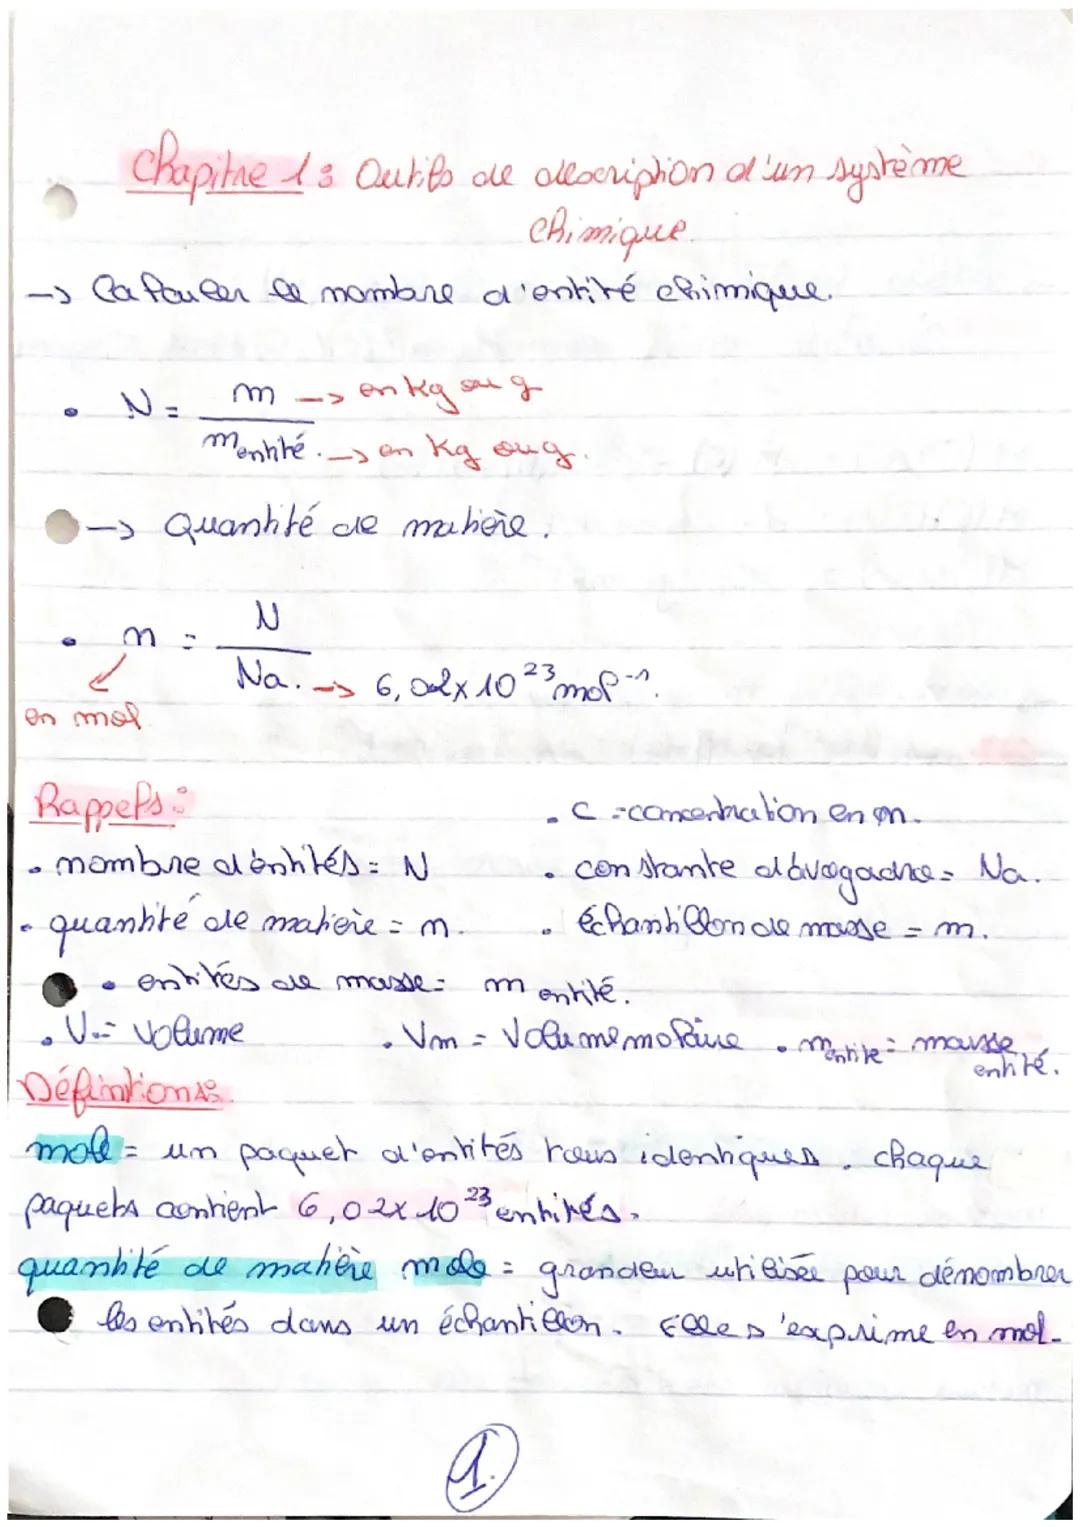 Chapitre 1 : Outils de description d'un système
chimique.
-> Calculer le nombre d'entité chimique.
• N = m / mentité. -> en kg ou g -> en kg ou g.
-> Quantité de matière.
• n = N / Na. -> 6,02 x 10^23 mol^-1.
en mol
Rappels :
• C = concentration en m.
• nombre d'entités = N
• constante d'avogadro = Na.
• quantité de matière = n.
• échantillon de masse = m.
• entités de masse = m entité.
• V = Volume
• Vm = Volume molaire
• mentité = masse entité.
Défintions :
mole = un paquet d'entités tous identiques. chaque
paquets contient 6,02 x 10^23 entités.
quantité de matière mole = grandeur utilisée pour dénombrer
les entités dans un échantillon. Elle s'exprime en mol.
1.